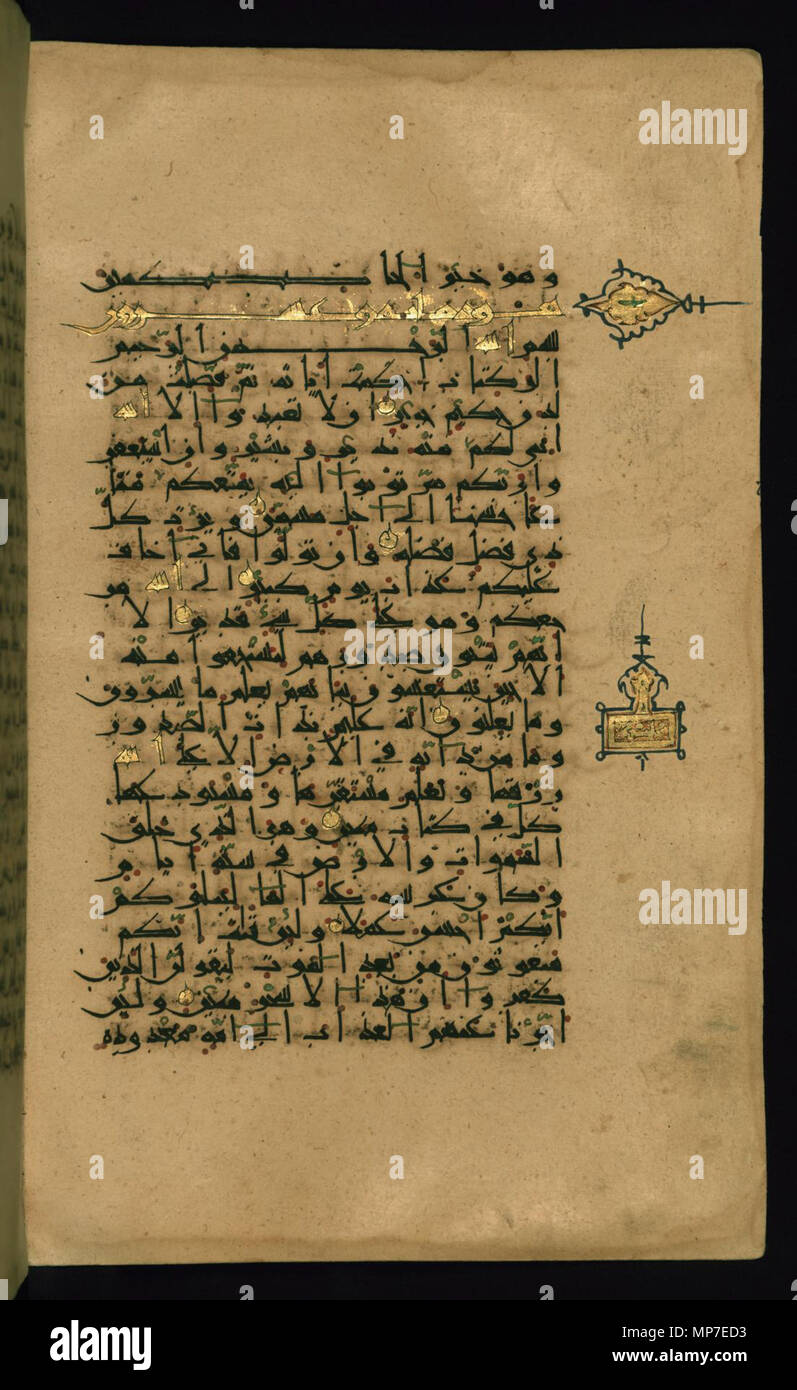 وهو خير الحاكمين
بسم الله الرحمن الرحيم
الر كتاب احكمت اياته ثم فصلت من
لدن حكيم خبير الا تعبدوا الا الله
انني لكم منه نذير وبشير وان استغفر
وا ربكم ثم توبوا اليه يمتعكم متا
عا حسنا الى اجل مسمى ويؤت كل
ذي فضل فضله وان تولوا فاني اخاف
عليكم عذاب يوم كبير الى الله مر
جعكم وهو على كل شيء قدير الا
انهم يثنون صدورهم ليستخفوا منه
الا حين يستغشون ثيابهم يعلم ما يسرون
وما يعلنون انه عليم بذات الصدور
وما من دابة في الارض الا على الله
رزقها ويعلم مستقرها ومستودعها
كل في كتاب مبين وهو الذي خلق
السموات والارض في ستة ايام
وكان عرشه على الما ليبلوكم
ايكم احسن عملا ولئن قلت انكم
مبعوثون من بعد الموت ليقولن الذين
كفروا ان هذا الا سحر مبين ولئن
اخرنا عنهم العذاب الى امة معدودة
alamy
alamy
alamy
alamy
Image ID: MP7ED3
www.alamy.com